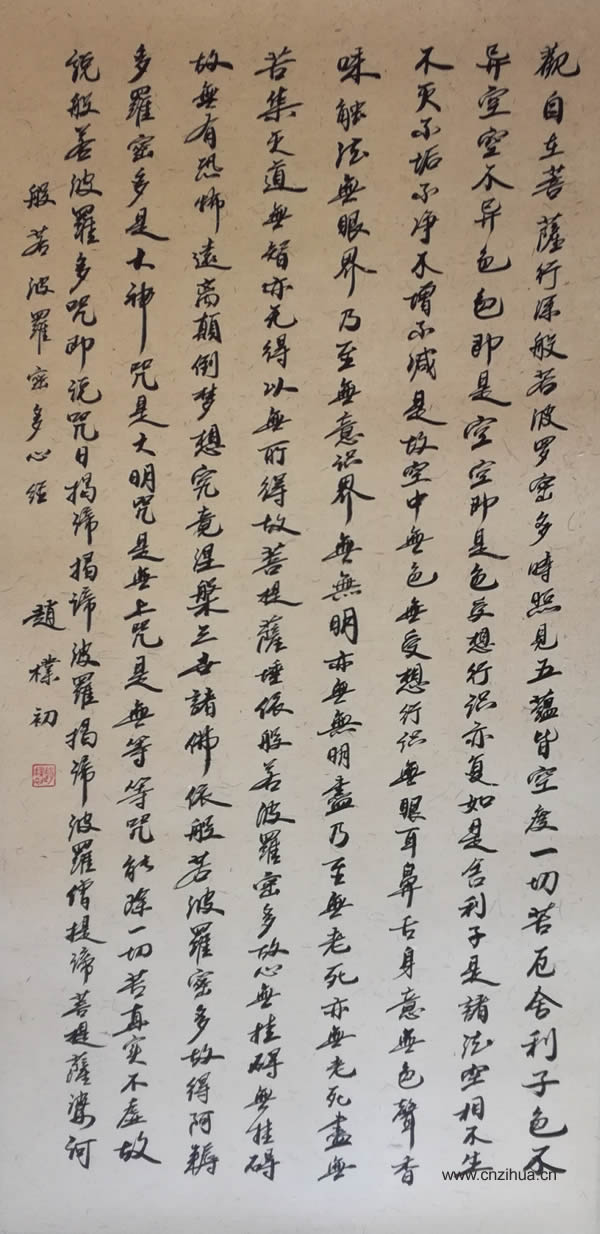 觀自在菩薩行深般若波罗密多時照見五蘊皆空度一切苦厄舍利子色不
异空空不异色色即是空空即是色受想行识亦复如是舍利子是諸法空相不生
不灭不垢不净不增不减是故空中無色無受想行识無眼耳鼻舌身意無色聲香
味触法無眼界乃至無意识界無無明亦無無明盡乃至無老死亦無老死盡無
苦集灭道無智亦无得以無所得故菩提薩埵依般若波羅密多故心無挂碍無挂碍
故無有恐怖遠离顛倒梦想究竟涅槃三世諸佛依般若波羅密多故得阿耨
多羅密多是大神咒是大明咒是無上咒是無等等咒能除一切苦真实不虚故
説般若波羅多咒即说咒曰揭諦揭諦波羅揭諦波羅僧提諦菩提薩婆訶
般若波羅密多心经
趙樸初
www.cnzihua.cn